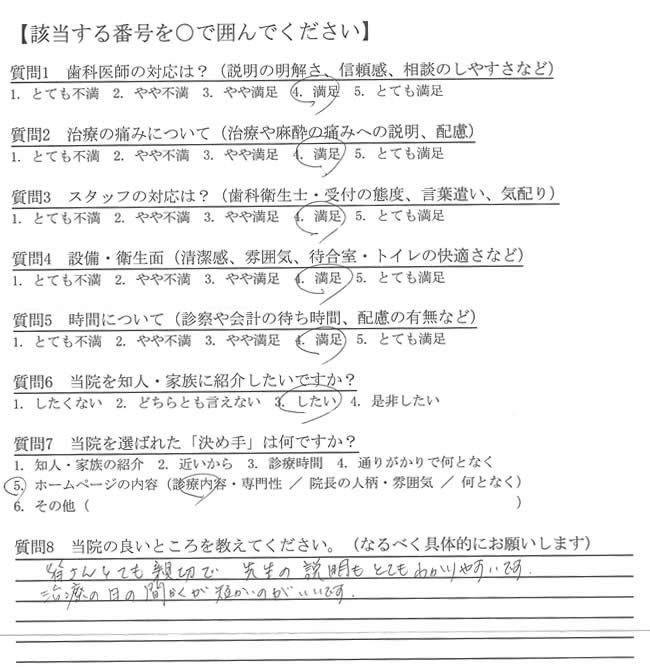 【該当する番号を○で囲んでください】
質問1　歯科医師の対応は？（説明の明解さ、信頼感、相談のしやすさなど）
1. とても不満　2. やや不満　3. やや満足　4. 満足　5. とても満足
質問2　治療の痛みについて（治療や麻酔の痛みへの説明、配慮）
1. とても不満　2. やや不満　3. やや満足　4. 満足　5. とても満足
質問3　スタッフの対応は？（歯科衛生士・受付の態度、言葉遣い、気配り）
1. とても不満　2. やや不満　3. やや満足　4. 満足　5. とても満足
質問4　設備・衛生面（清潔感、雰囲気、待合室・トイレの快適さなど）
1. とても不満　2. やや不満　3. やや満足　4. 満足　5. とても満足
質問5　時間について（診察や会計の待ち時間、配慮の有無など）
1. とても不満　2. やや不満　3. やや満足　4. 満足　5. とても満足
質問6　当院を知人・家族に紹介したいですか？
1. したくない　2. どちらとも言えない　3. したい　4. 是非したい
質問7　当院を選ばれた「決め手」は何ですか？
1. 知人・家族の紹介　2. 近いから　3. 診療時間　4. 通りがかりで何となく
5. ホームページの内容（診療内容・専門性 ／ 院長の人柄・雰囲気 ／ 何となく）
6. その他（　　　　　　　　　　　　　　　　　　　　　　　　　　　　）
質問8　当院の良いところを教えてください。（なるべく具体的にお願いします）
皆さんとても親切で 先生の説明もとてもわかりやすいです.
治療の日の間かくが短かいのがいいです.